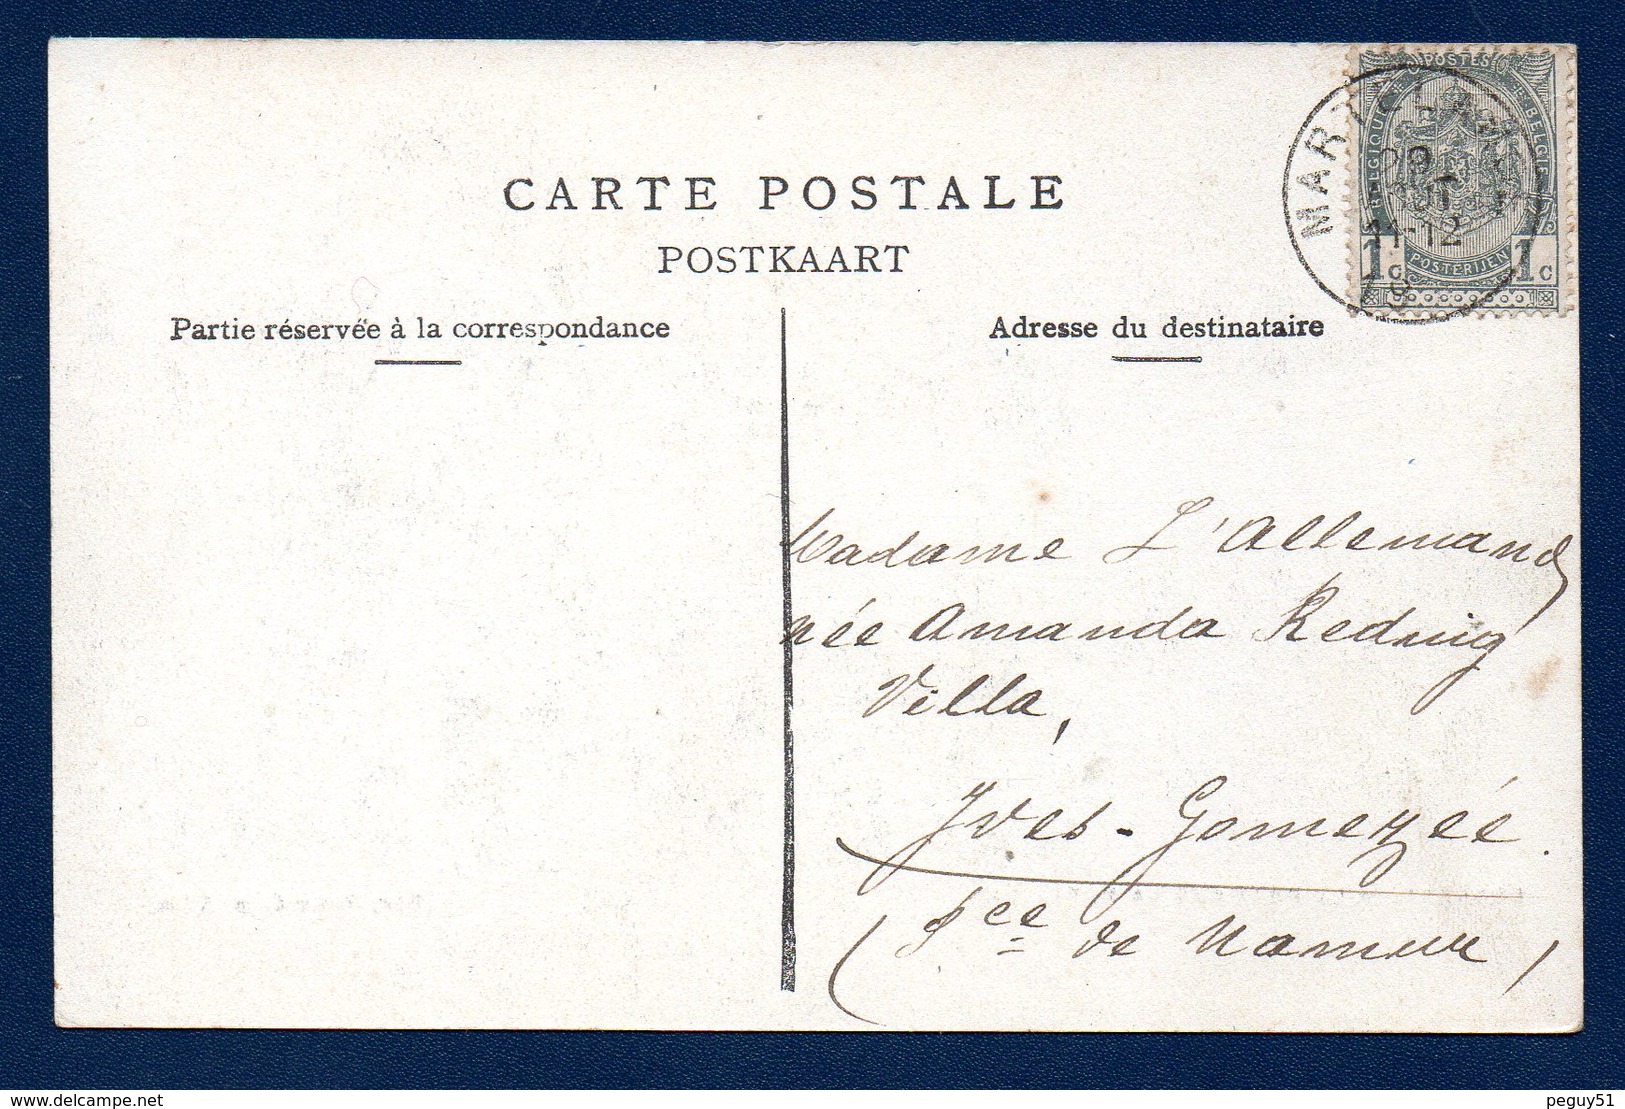 CARTE POSTALE
POSTKAART
Partie réservée à la correspondance
Adresse du destinataire
POSTES
BELGIQUE
BELGIE
11-12
POSTERIJEN
1c 1c
Madame L'Allemand
née Amanda Reding
Villa,
Yves-Gomezée.
(Pce de Namur)
www.delcampe.net
peguy51